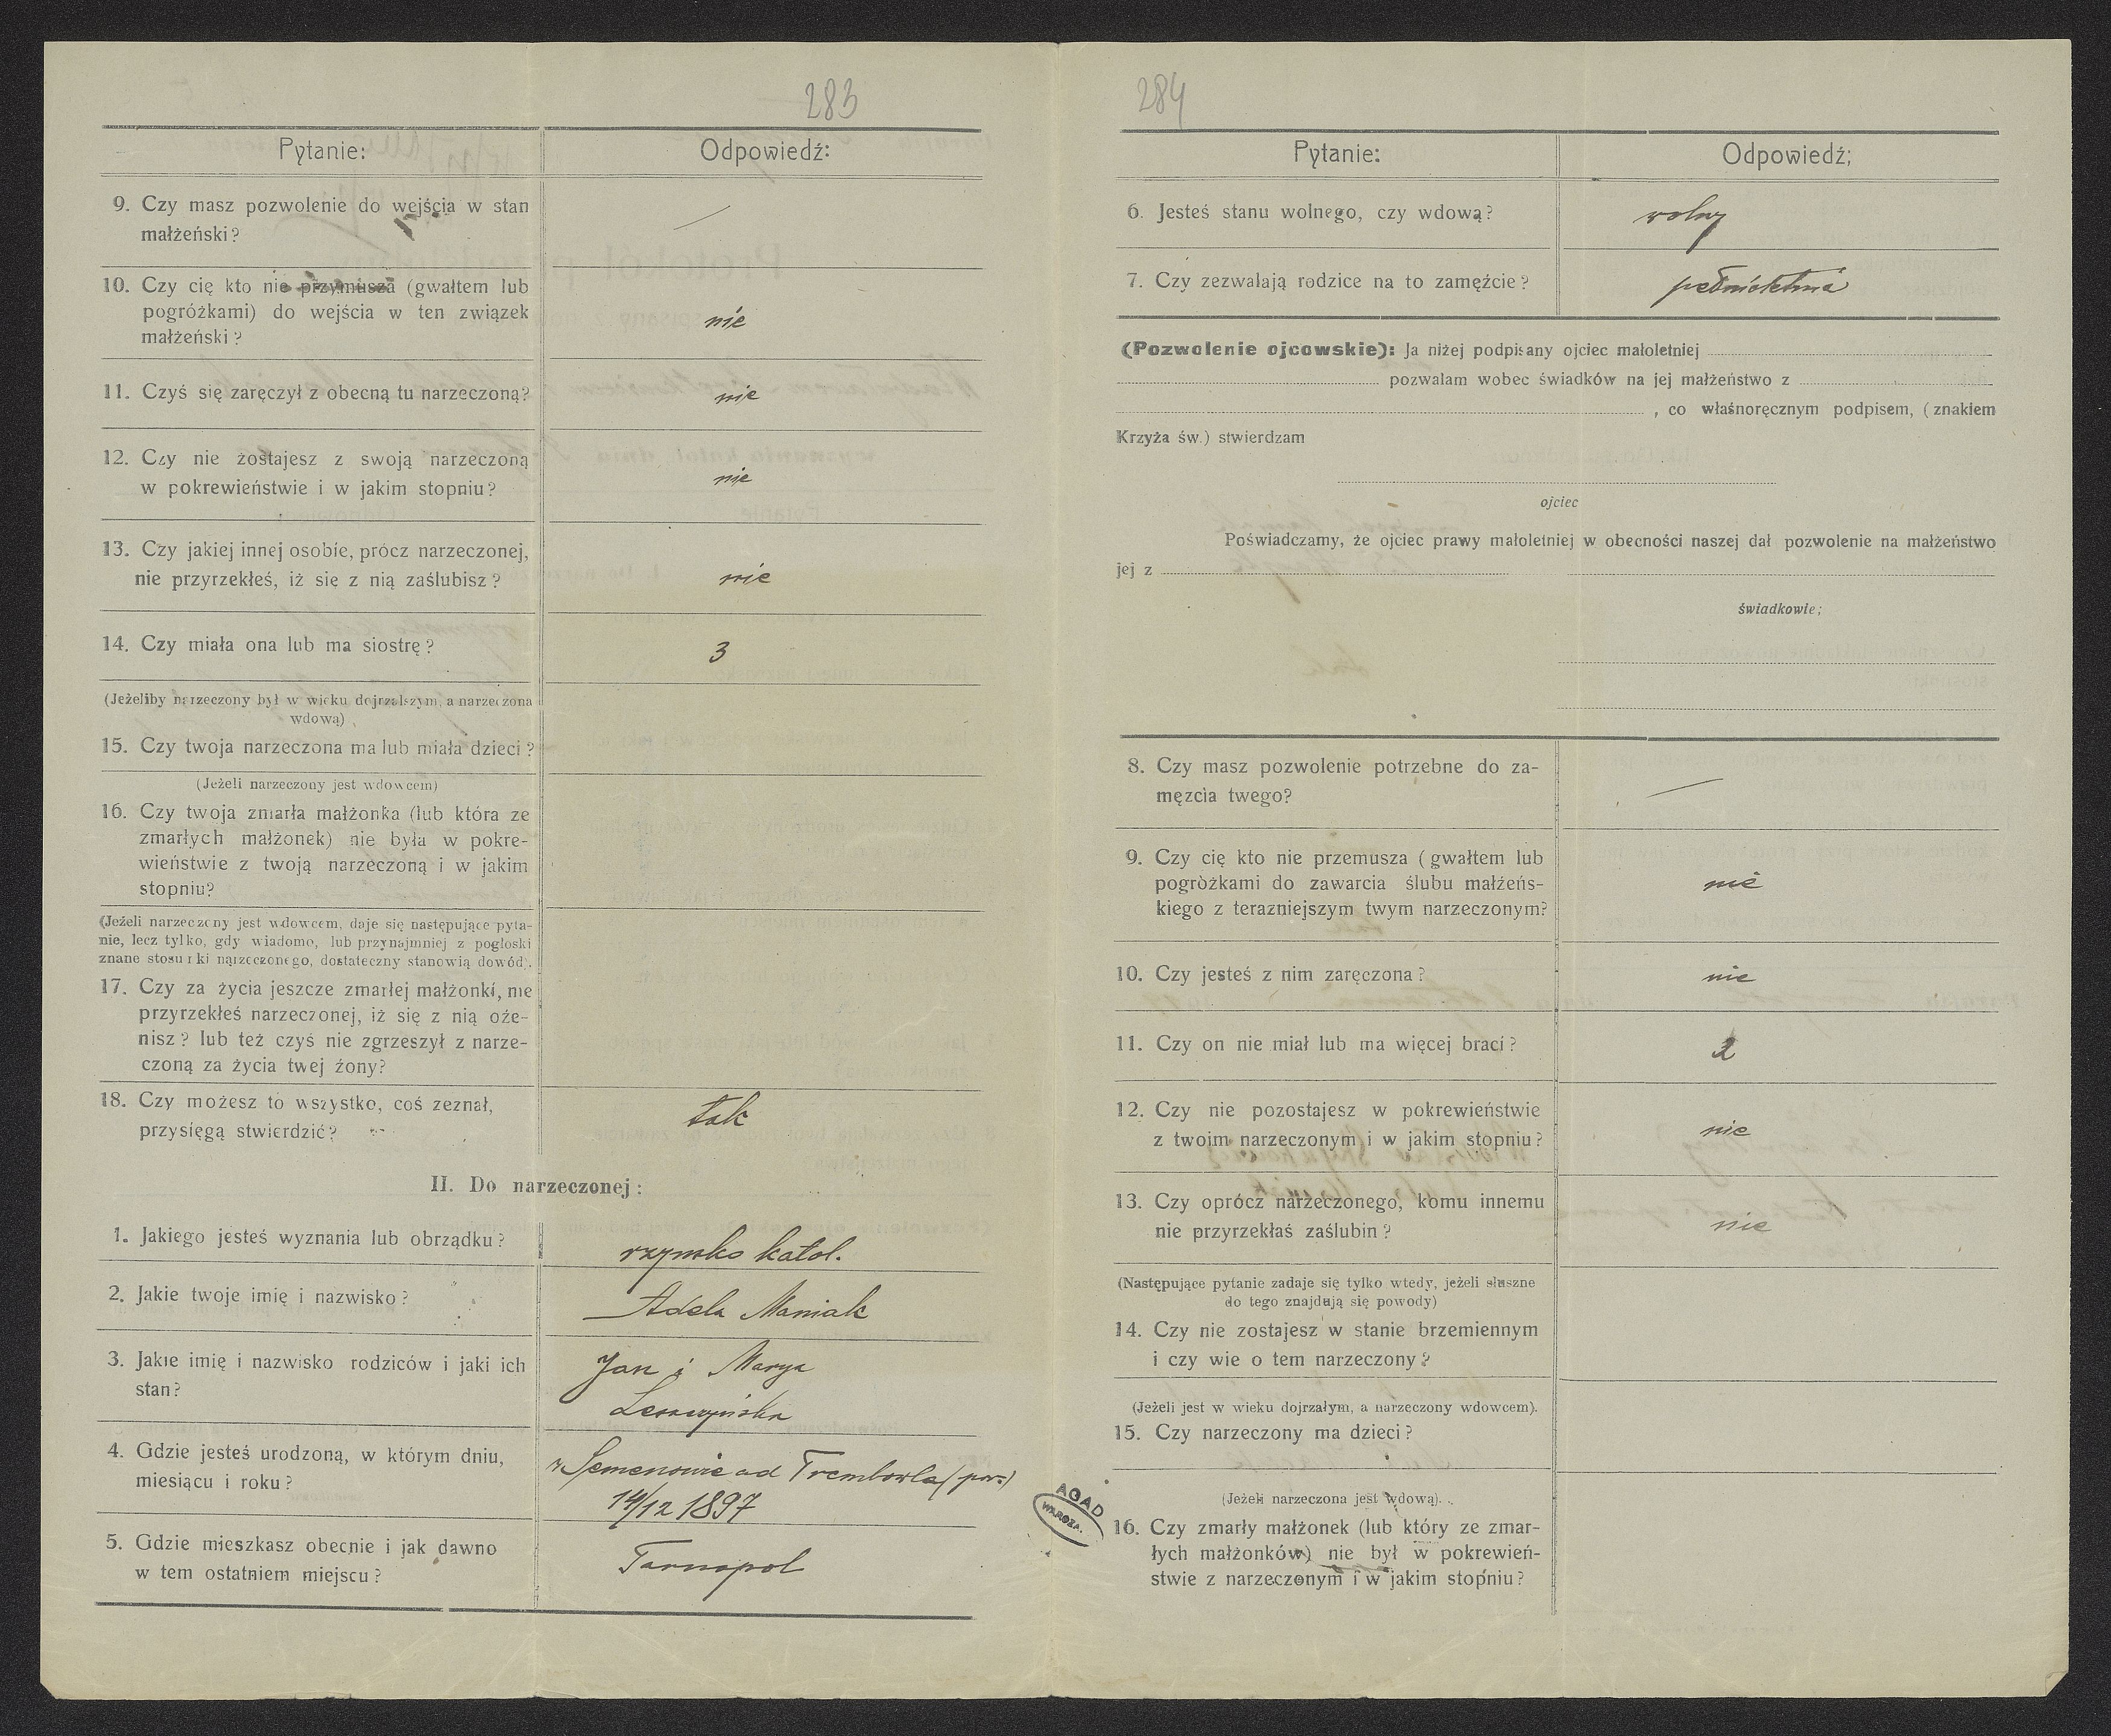 283
Pytanie:
Odpowiedź:
9. Czy masz pozwolenie do wejścia w stan
małżeński?
—
10. Czy cię kto nie przymusza (gwałtem lub
pogróżkami) do wejścia w ten związek
małżeński?
nie
11. Czyś się zaręczył z obecną tu narzeczoną?
nie
12. Czy nie zostajesz z swoją narzeczoną
w pokrewieństwie i w jakim stopniu?
nie
13. Czy jakiej innej osobie, prócz narzeczonej,
nie przyrzekłeś, iż się z nią zaślubisz?
nie
14. Czy miała ona lub ma siostrę?
3
(Jeżeliby narzeczony był w wieku dojrzalszym, a narzeczona
wdową)
15. Czy twoja narzeczona ma lub miała dzieci?
(Jeżeli narzeczony jest wdowcem)
16. Czy twoja zmarła małżonka (lub która ze
zmarłych małżonek) nie była w pokre-
wieństwie z twoją narzeczoną i w jakim
stopniu?
(Jeżeli narzeczony jest wdowcem, daje się następujące pyta-
nie, lecz tylko, gdy wiadome, lub przynajmniej z pogłoski
znane stosunki narzeczonego, dostateczny stanowią dowód).
17. Czy za życia jeszcze zmarłej małżonki, nie
przyrzekłeś narzeczonej, iż się z nią oże-
nisz? lub też czyś nie zgrzeszył z narze-
czoną za życia twej żony?
18. Czy możesz to wszystko, coś zeznał,
przysięgą stwierdzić?
tak
II. Do narzeczonej:
1. Jakiego jesteś wyznania lub obrządku?
rzymsko katol.
2. Jakie twoje imię i nazwisko?
Adela Maniak
3. Jakie imię i nazwisko rodziców i jaki ich
stan?
Jan i Marya
Leszczyńska
4. Gdzie jesteś urodzoną, w którym dniu,
miesiącu i roku?
w Semenowie ad Trembowla (pow.)
14/12 1897
5. Gdzie mieszkasz obecnie i jak dawno
w tem ostatniem miejscu?
Tarnopol
284
Pytanie:
Odpowiedź;
6. Jesteś stanu wolnego, czy wdową?
wolny
7. Czy zezwalają rodzice na to zamężcie?
pełnoletnia
(Pozwolenie ojcowskie): Ja niżej podpisany ojciec małoletniej
pozwalam wobec świadków na jej małżeństwo z
, co właśnoręcznym podpisem, (znakiem
Krzyża św.) stwierdzam
ojciec
Poświadczamy, że ojciec prawy małoletniej w obecności naszej dał pozwolenie na małżeństwo
jej z
świadkowie;
8. Czy masz pozwolenie potrzebne do za-
męzcia twego?
—
9. Czy cię kto nie przemusza (gwałtem lub
pogròżkami do zawarcia ślubu małżeńs-
kiego z terazniejszym twym narzeczonym?
nie
10. Czy jesteś z nim zaręczona?
nie
11. Czy on nie miał lub ma więcej braci?
2
12. Czy nie pozostajesz w pokrewieństwie
z twoim narzeczonym i w jakim stopniu?
nie
13. Czy oprócz narzeczonego, komu innemu
nie przyrzekłaś zaślubin?
nie
(Następujące pytanie zadaje się tylko wtedy, jeżeli słuszne
do tego znajdują się powody)
14. Czy nie zostajesz w stanie brzemiennym
i czy wie o tem narzeczony?
(Jeżeli jest w wieku dojrzałym, a narzeczony wdowcem).
15. Czy narzeczony ma dzieci?
(Jeżeli narzeczona jest wdową).
AGAD
WARSZA.
16. Czy zmarły małżonek (lub który ze zmar-
łych małżonków) nie był w pokrewień-
stwie z narzeczonym i w jakim stopniu?